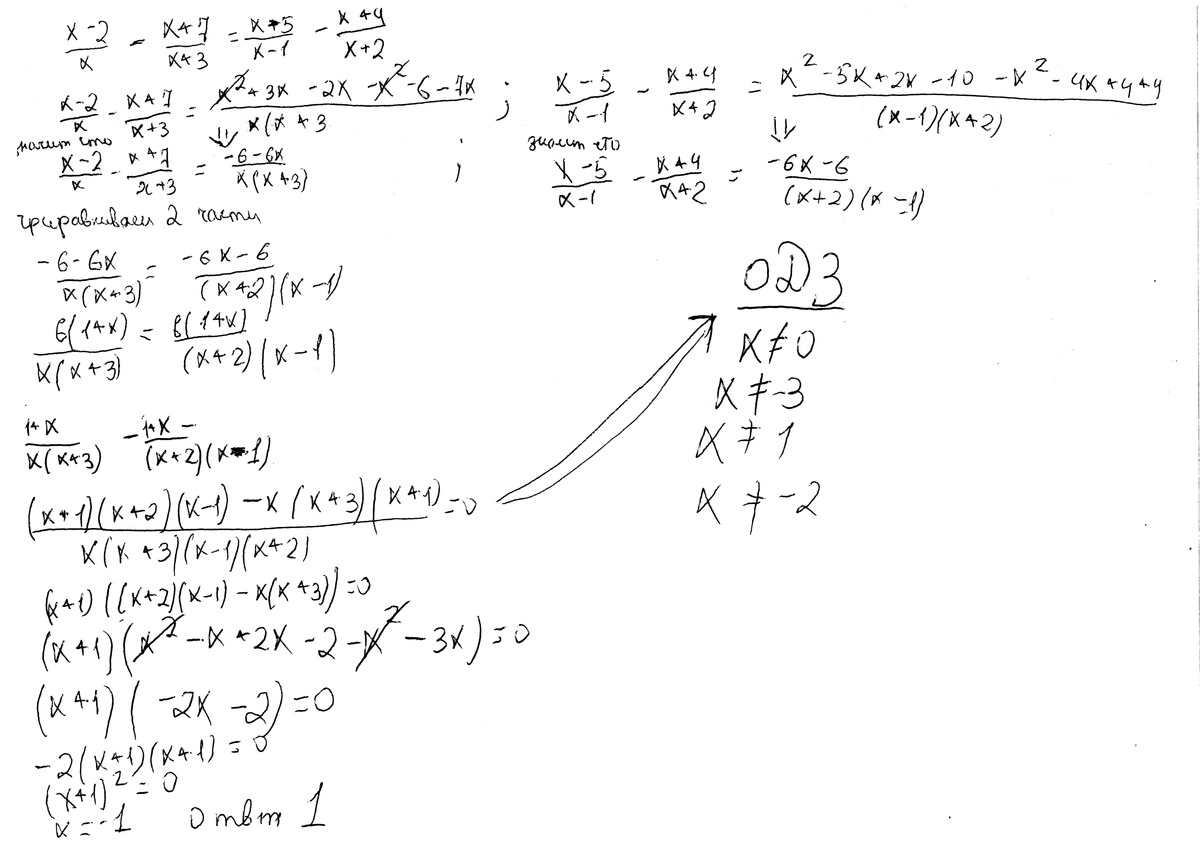 (x-2)/x - (x+7)/(x+3) = (x+5)/(x-1) - (x+4)/(x+2)
(x-2)/x - (x+7)/(x+3) = (x²+3x-2x-x²-6-7x)/(x(x+3 ; (x-5)/(x-1) - (x+4)/(x+2) = (x²-5x+2x-10-x²-4x+4+4)/((x-1)(x+2))
значит что ⇓ ; значит что ⇓
(x-2)/x - (x+7)/(x+3) = (-6-6x)/(x(x+3)) ; (x-5)/(x-1) - (x+4)/(x+2) = (-6x-6)/((x+2)(x-1))
приравниваем 2 части
(-6-6x)/(x(x+3)) = (-6x-6)/((x+2)(x-1))
6(1+x)/(x(x+3)) = 6(1+x)/((x+2)(x-1))
(1+x)/(x(x+3)) - (1+x-)/((x+2)(x-1))
((x+1)(x+2)(x-1)-x(x+3)(x+1))/(x(x+3)(x-1)(x+2)) = 0
(x+1)((x+2)(x-1)-x(x+3))=0
(x+1)(x²-x+2x-2-x²-3x)=0
(x+1)(-2x-2)=0
-2(x+1)(x+1)=0
(x+1)²=0
x=-1 ответ 1
ОДЗ
x≠0
x≠-3
x≠1
x≠-2